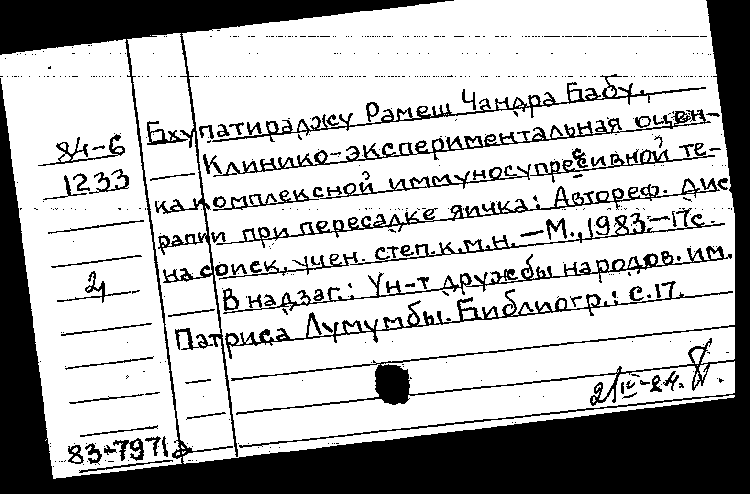 Бхупатираджу Рамеш Чандра Бабу.
84-6 Клинико-экспериментальная оцен-
1233 ка комплексной иммуносупрессивной те-
рапии при пересадке яичка: Автореф. дис
на соиск. учен. степ. к.м.н. — М., 1983. — 17с.
2 В надзаг.: Ун-т дружбы народов. им.
Патриса Лумумбы. Библиогр.: с.17.
83-7971